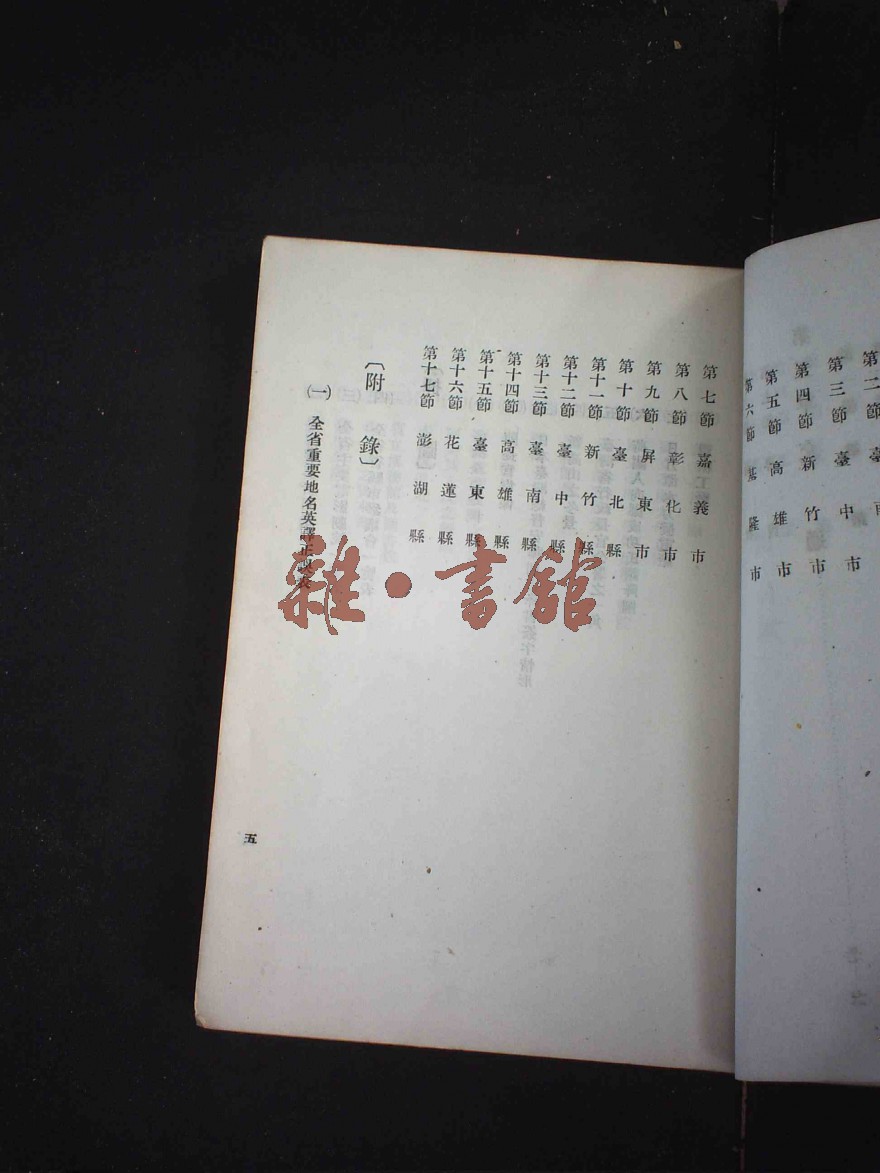 第二節 臺
第三節 臺中市
第四節 新竹市
第五節 高雄市
第六節 基隆市
第七節 嘉義市
第八節 彰化市
第九節 屏東市
第十節 臺北縣
第十一節 新竹縣
第十二節 臺中縣
第十三節 臺南縣
第十四節 高雄縣
第十五節 臺東縣
第十六節 花蓮縣
第十七節 澎湖縣
〔附錄〕
(一) 全省重要地名英譯正誤表
五
雜·書館